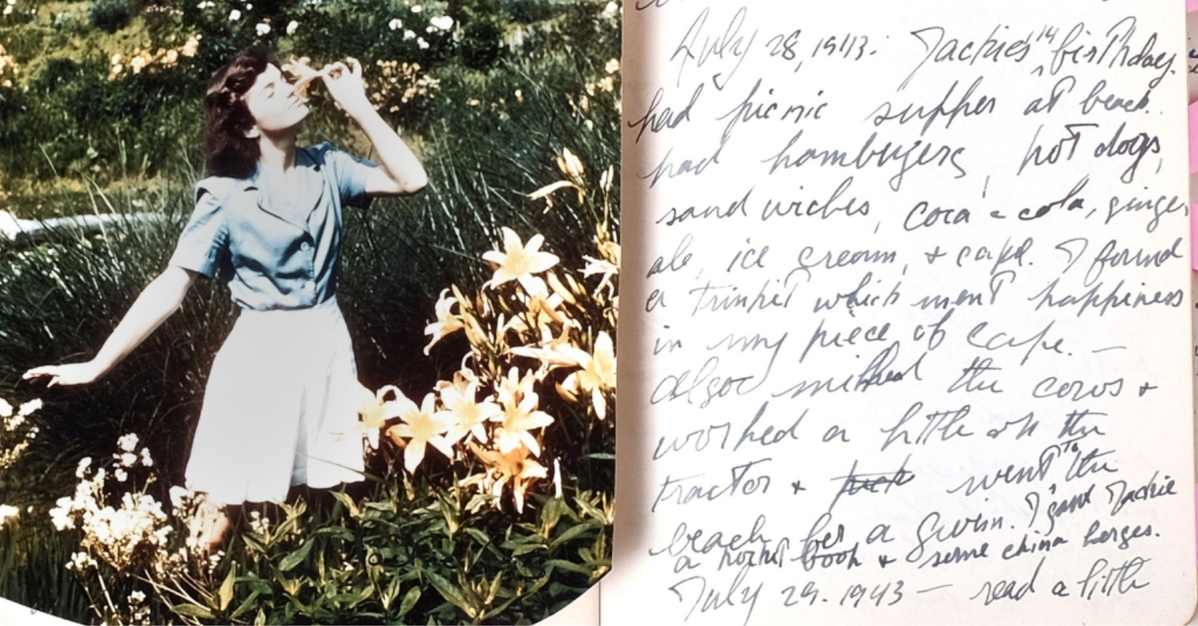 July 28, 1943. Jackie's 14 birthday.
had picnic supper at beach.
had hamburgers, hot dogs,
sandwiches, coca-cola, ginger
ale, ice cream, + cake. I found
a trinkit which ment happiness
in my piece of cake. —
also milked the cows +
worked a little on the
tractor + went to the
beach for a swim. I gave Jackie
a horse book + some china horses.
July 29. 1943 — read a little